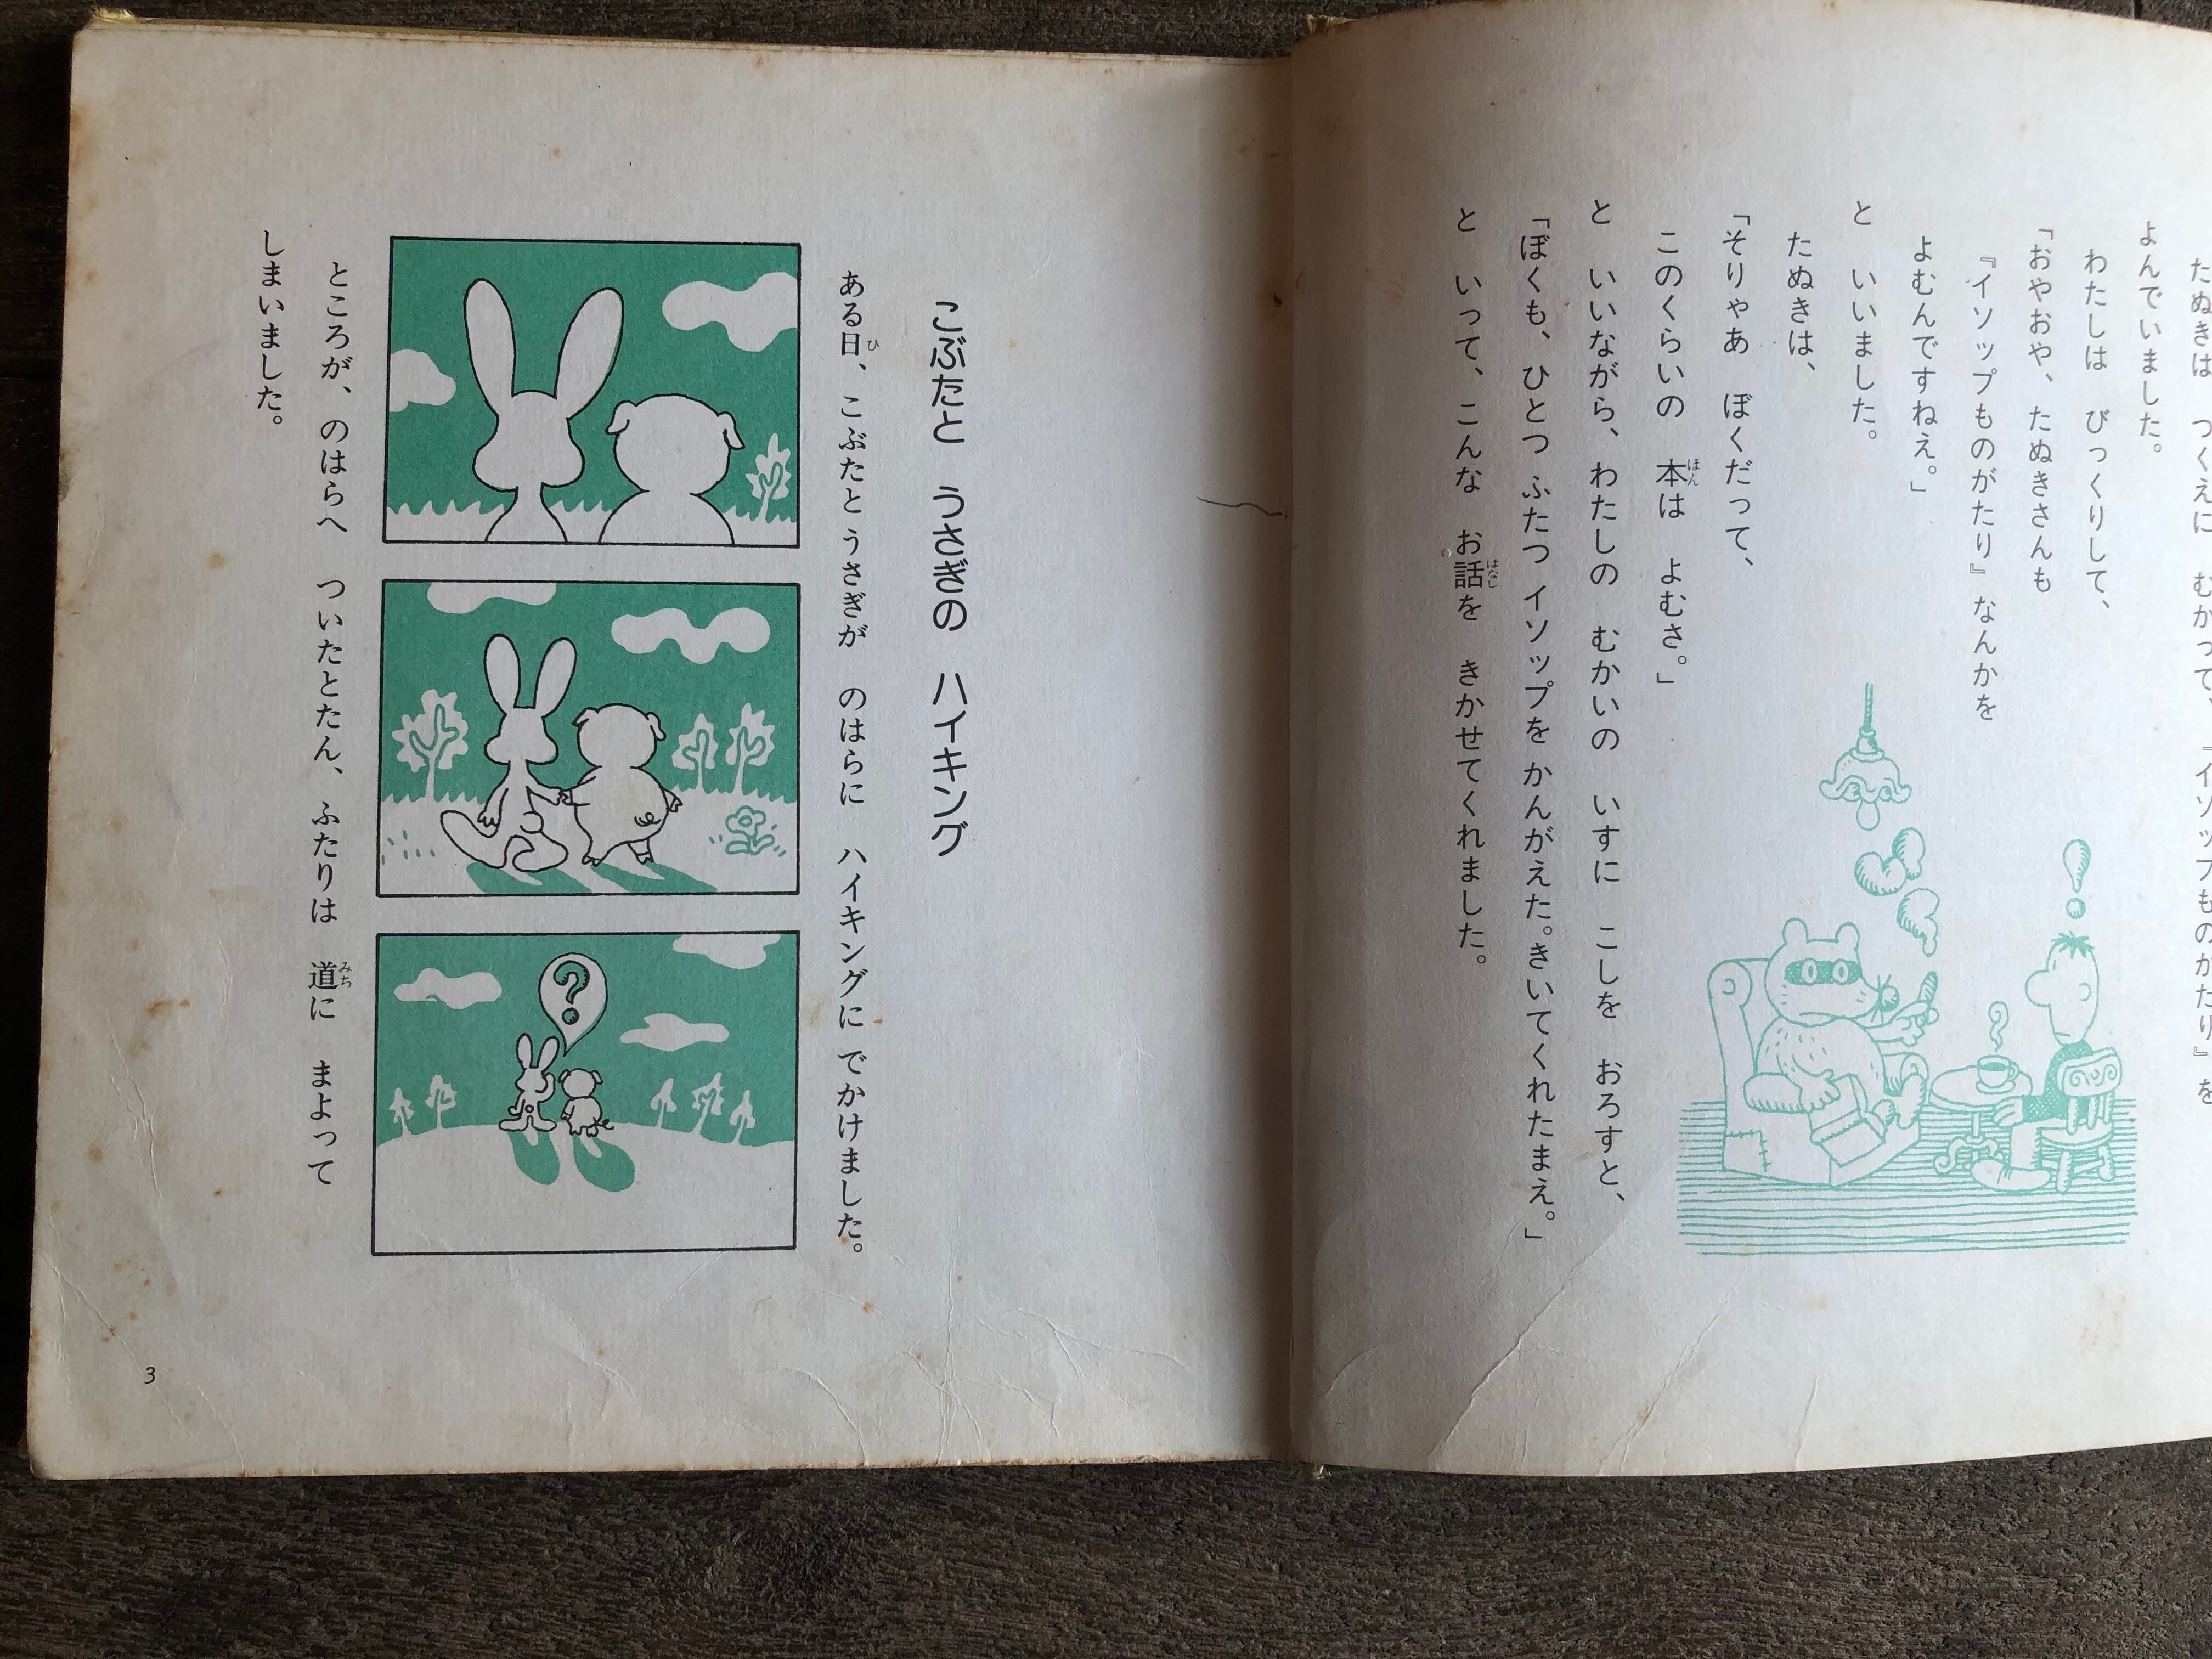 たぬきは つくえに むかって、『イソップものがたり』を
よんでいました。
わたしは びっくりして、
「おやおや、たぬきさんも
『イソップものがたり』なんかを
よむんですねえ。」
と いいました。
たぬきは、
「そりゃあ ぼくだって、
このくらいの 本は よむさ。」
と いいながら、わたしの むかいの いすに こしを おろすと、
「ぼくも、ひとつ ふたつ イソップを かんがえた。きいてくれたまえ。」
と いって、こんな お話を きかせてくれました。
こぶたと うさぎの ハイキング
ある日、こぶたと うさぎが のはらに ハイキングに でかけました。
?
ところが、のはらへ ついたとたん、ふたりは 道に まよって
しまいました。
3